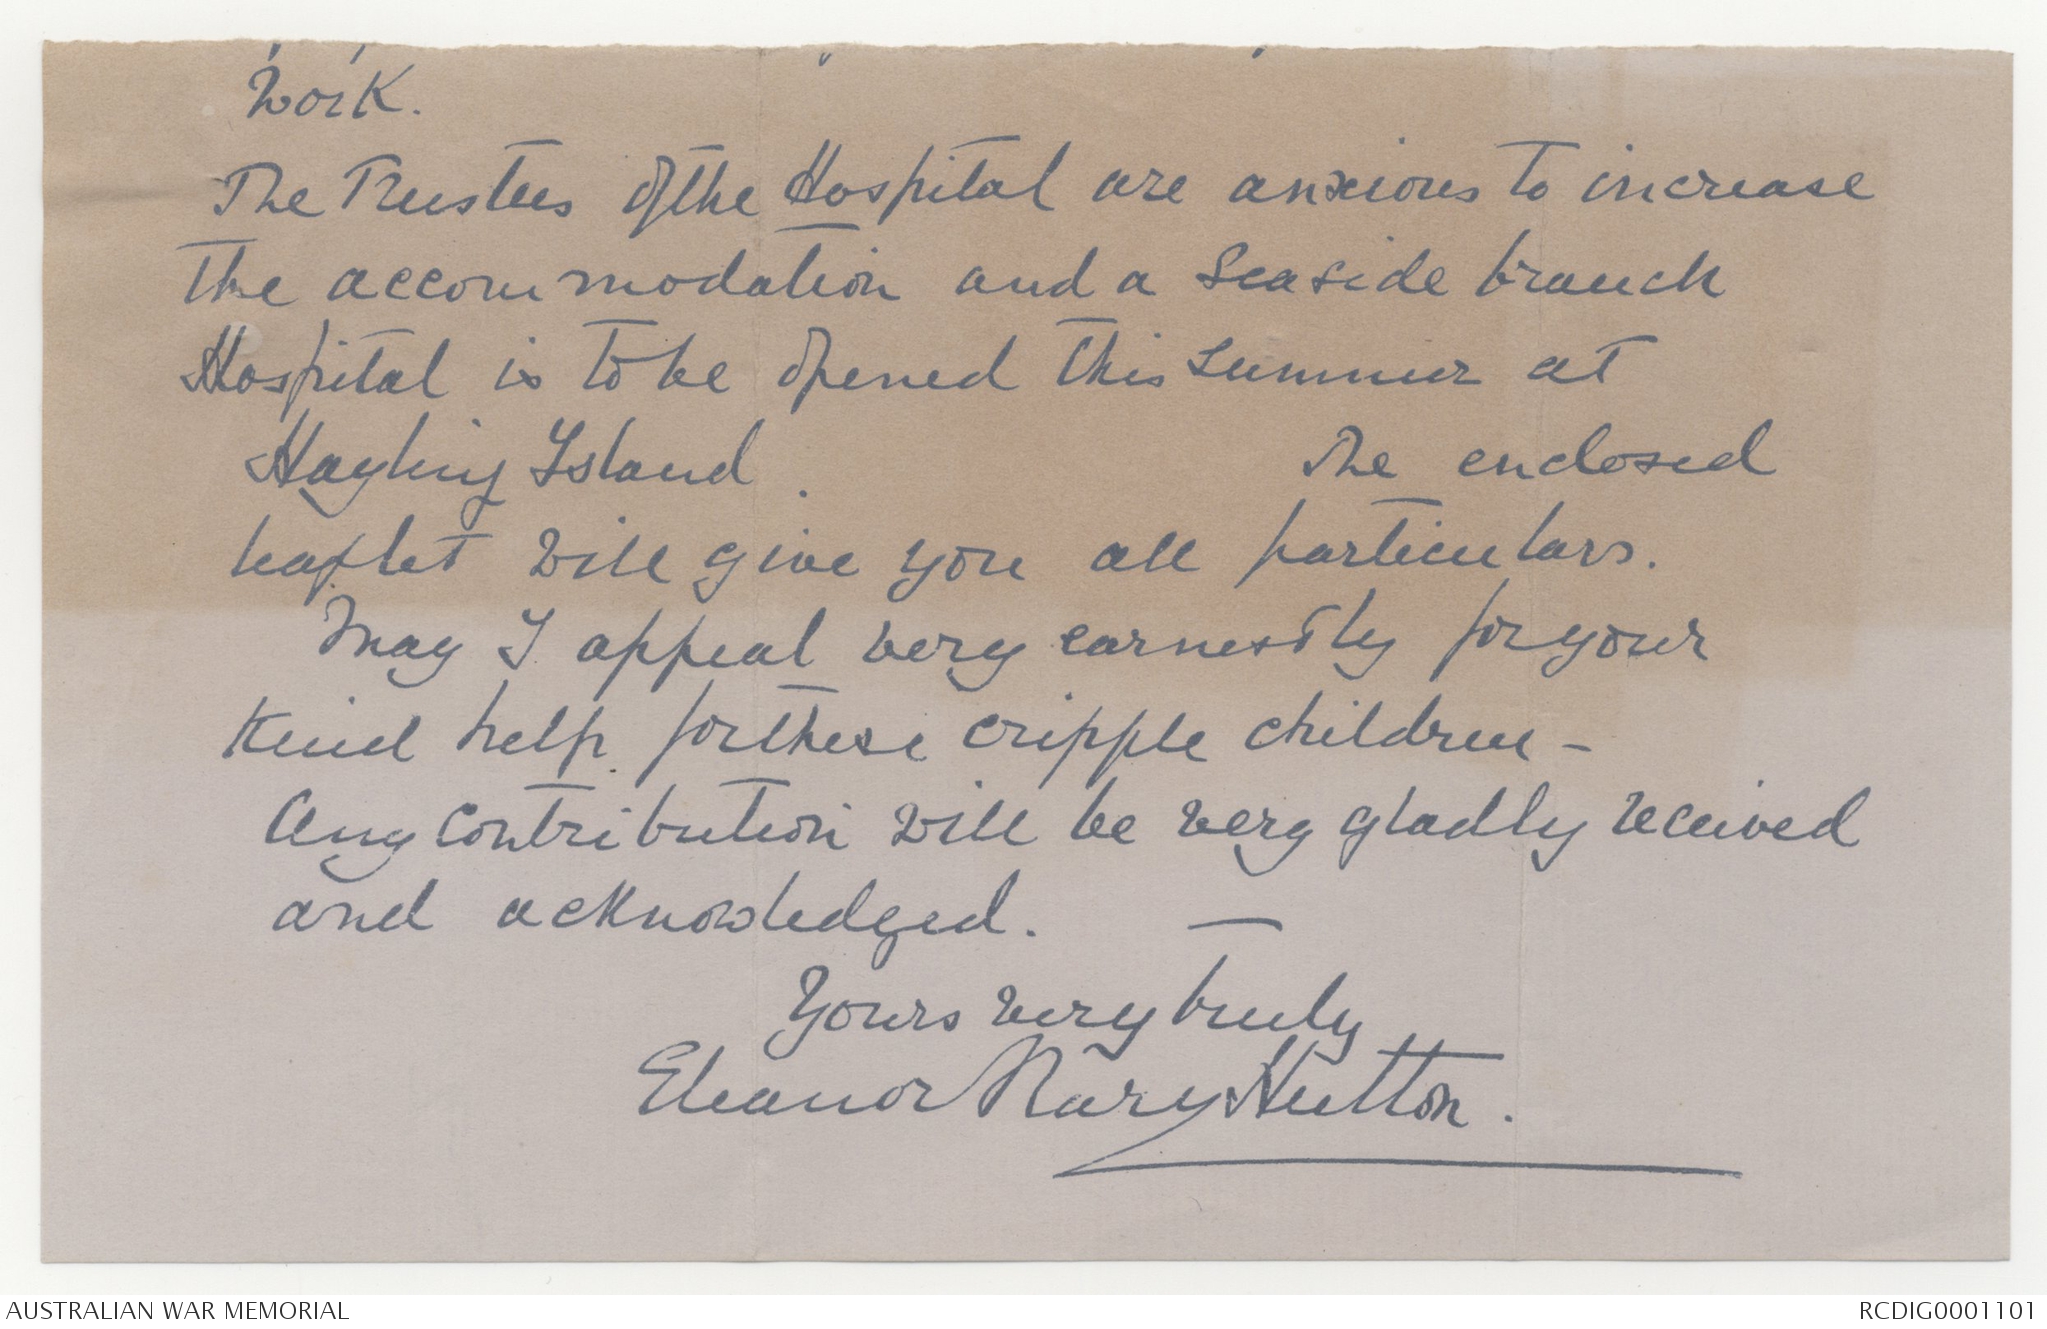 work.
The Trustees of the Hospital are anxious to increase
the accommodation and a seaside branch
Hospital is to be opened this summer at
Hayling Island. The enclosed
leaflet will give you all particulars.
May I appeal very earnestly for your
kind help for these cripple children -
Any contribution will be very gladly received
and acknowledged. —
Yours very truly
Eleanor Mary Hutton.
AUSTRALIAN WAR MEMORIAL
RCDIG0001101